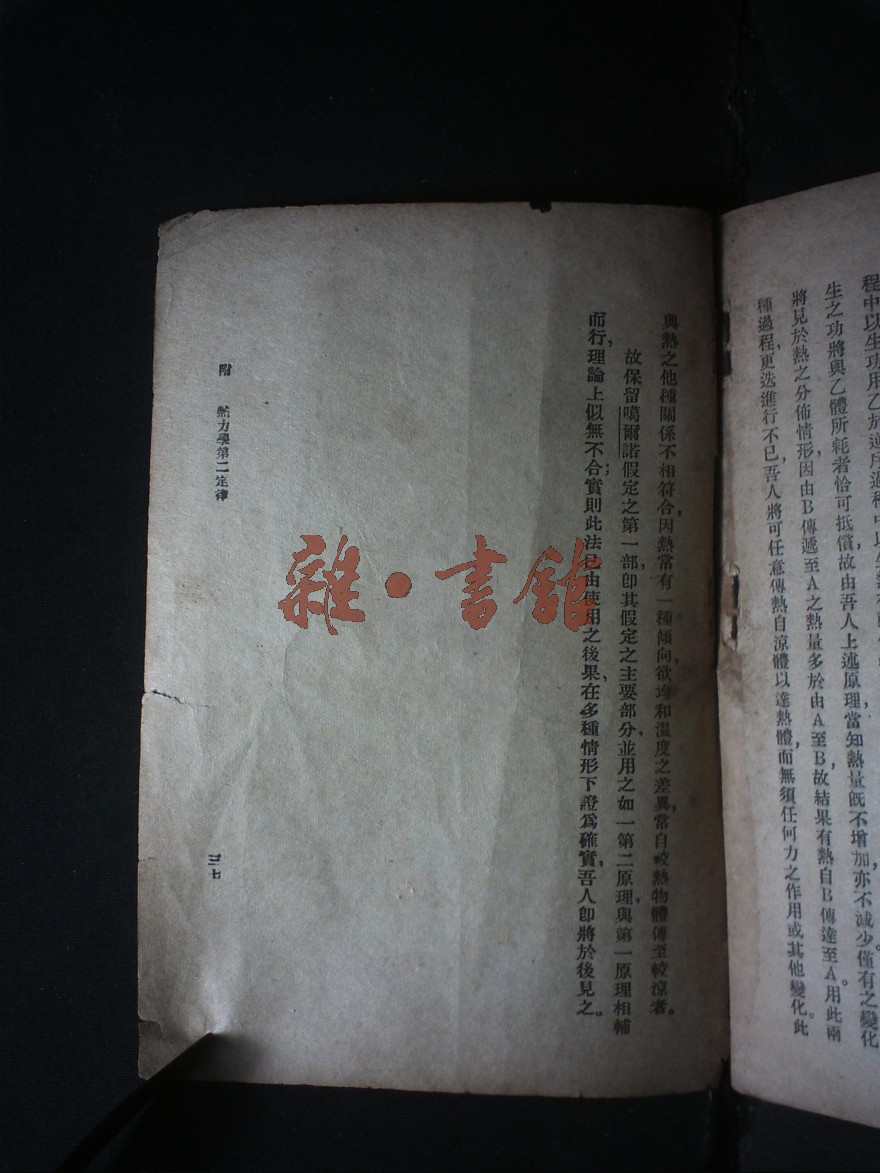 程中以生功用乙於逆序過程中以生熱
生之功將與乙體所耗者恰可抵償，故由吾人上述原理當知熱量旣不增加，亦不減少，僅有之變化
將見於熱之分佈情形，因由B傳遞至A之熱量多於由A至B，故結果有熱自B傳達至A。用此兩
種過程，更迭進行不已，吾人將可任意傳熱自涼體以達熱體，而無須任何力之作用或其他變化。此
與熱之他種關係不相符合，因熱常有一種傾向，欲均和溫度之差異，常自較熱物體傳至較涼者。
故保留噶爾諾假定之第一部，卽其假定之主要部分，並用之如一第二原理，與第一原理相輔
而行，理論上似無不合；實則此法已由使用之後果，在多種情形下證爲確實，吾人卽將於後見之。
附　熱力學第二定律
三七
雜·書館